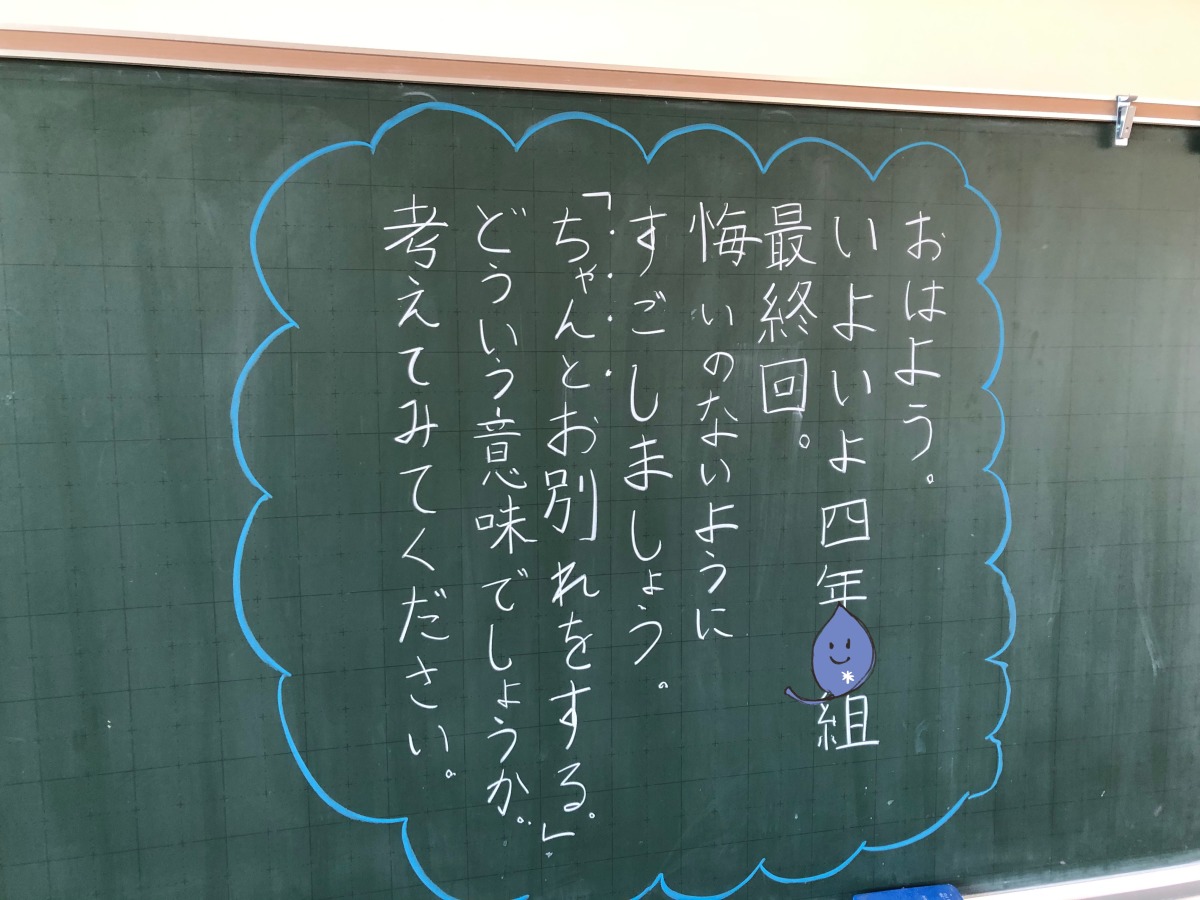 おはよう。
いよいよ四年組
最終回。
悔いのないように
すごしましょう。
「ちゃんとお別れをする。」
どういう意味でしょうか。
考えてみてください。